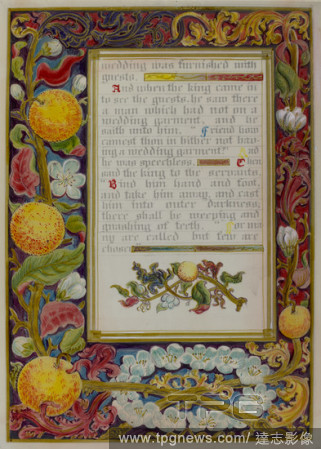 wedding was furnished with
guests.
And when the king came in
to see the guests, he saw there
a man which had not on a
wedding garment, and he
saith unto him, "Friend how
camest thou in hither not hav
ing a wedding garment" And
he was speechless. Then
said the king to the servants
Bind him hand and foot,
and take him away, and cast
him into outer darkness,
there shall be weeping and
gnashing of teeth. "For ma
ny are called but few are
chosen
TPG
www.tpgnews.com/ 達志影像